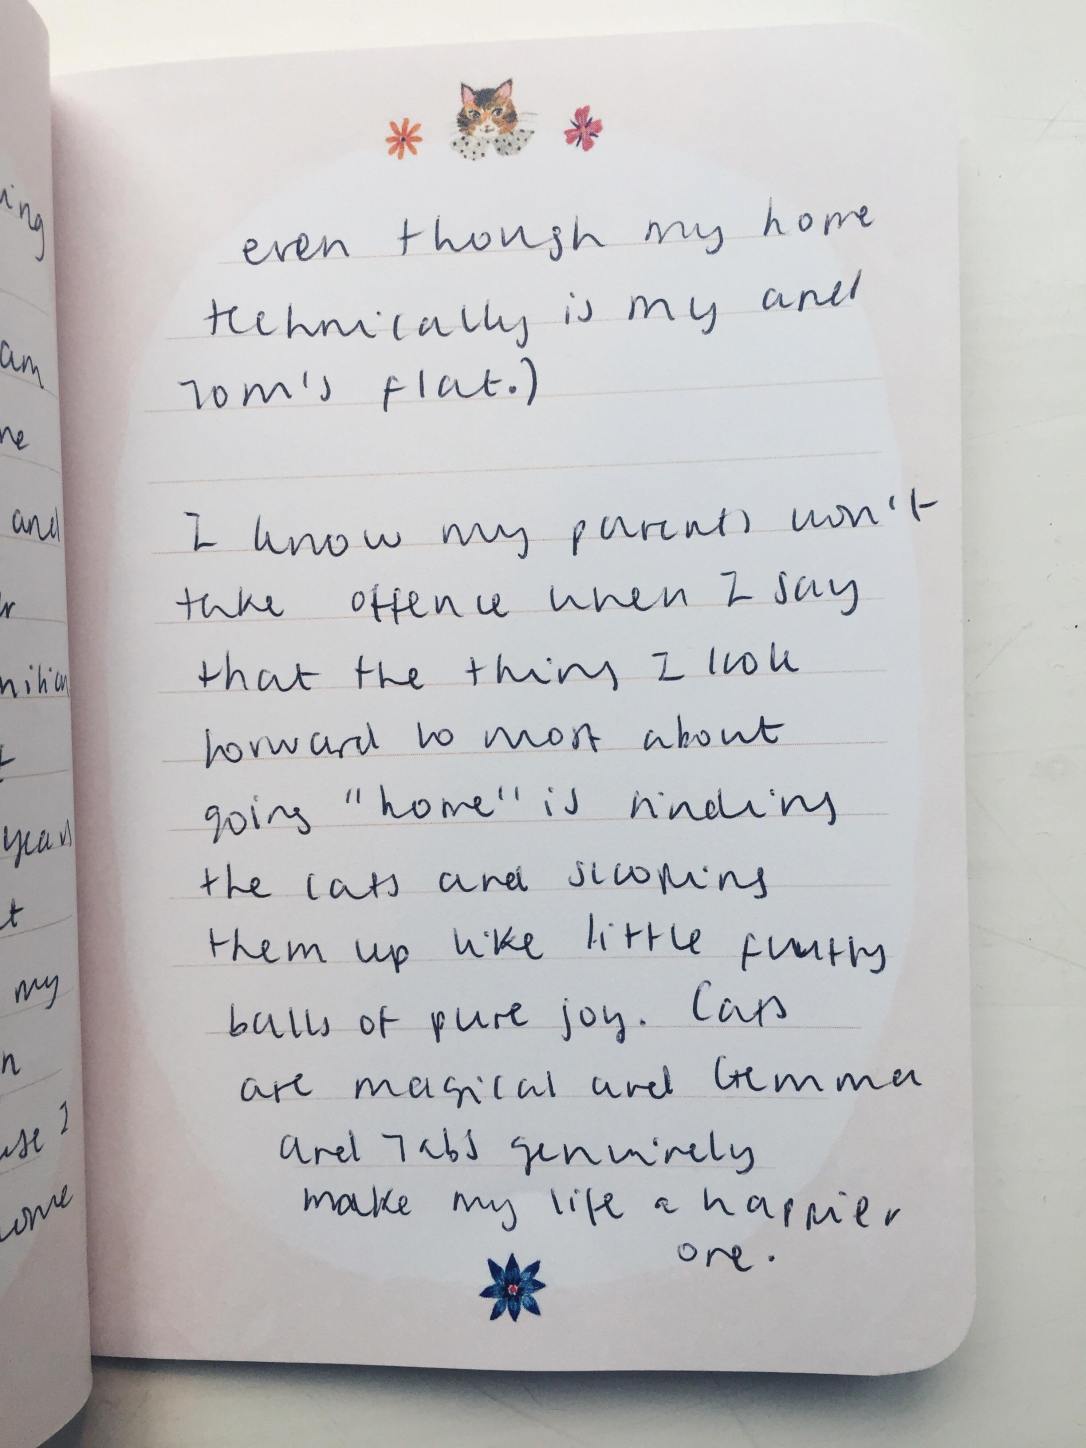 ing
am
me
and
years
my
n
use I
home
even though my home
technically is my and
Tom's flat.)
I know my parents won't
take offence when I say
that the thing I look
forward to most about
going "home" is finding
the cats and scooping
them up like little fluffy
balls of pure joy. Cats
are magical and Gemma
and Tabs genuinely
make my life a happier
one.